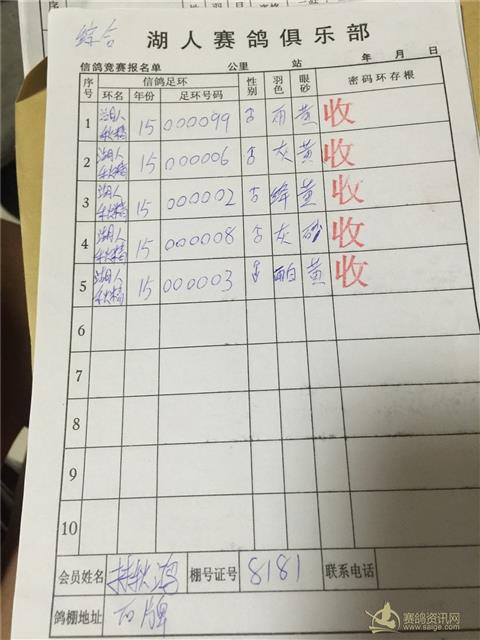 综合
湖人赛鸽俱乐部
信鸽竞赛报名单 公里 站 年 月 日
序号 信鸽足环 性别 羽色 眼砂 密码环存根
环名 年份 足环号码
1 湖人 15 000099 雨 黄 收
2 湖人 15 000006 灰 黄 收
3 湖人 15 000002 绛 黄 收
4 湖人 15 000008 灰 砂 收
5 湖人 15 000003 雨白 黄 收
6
7
8
9
10
会员姓名 棚号证号 8181 联系电话
鸽棚地址 石牌
赛鸽资讯网
www.saige.com